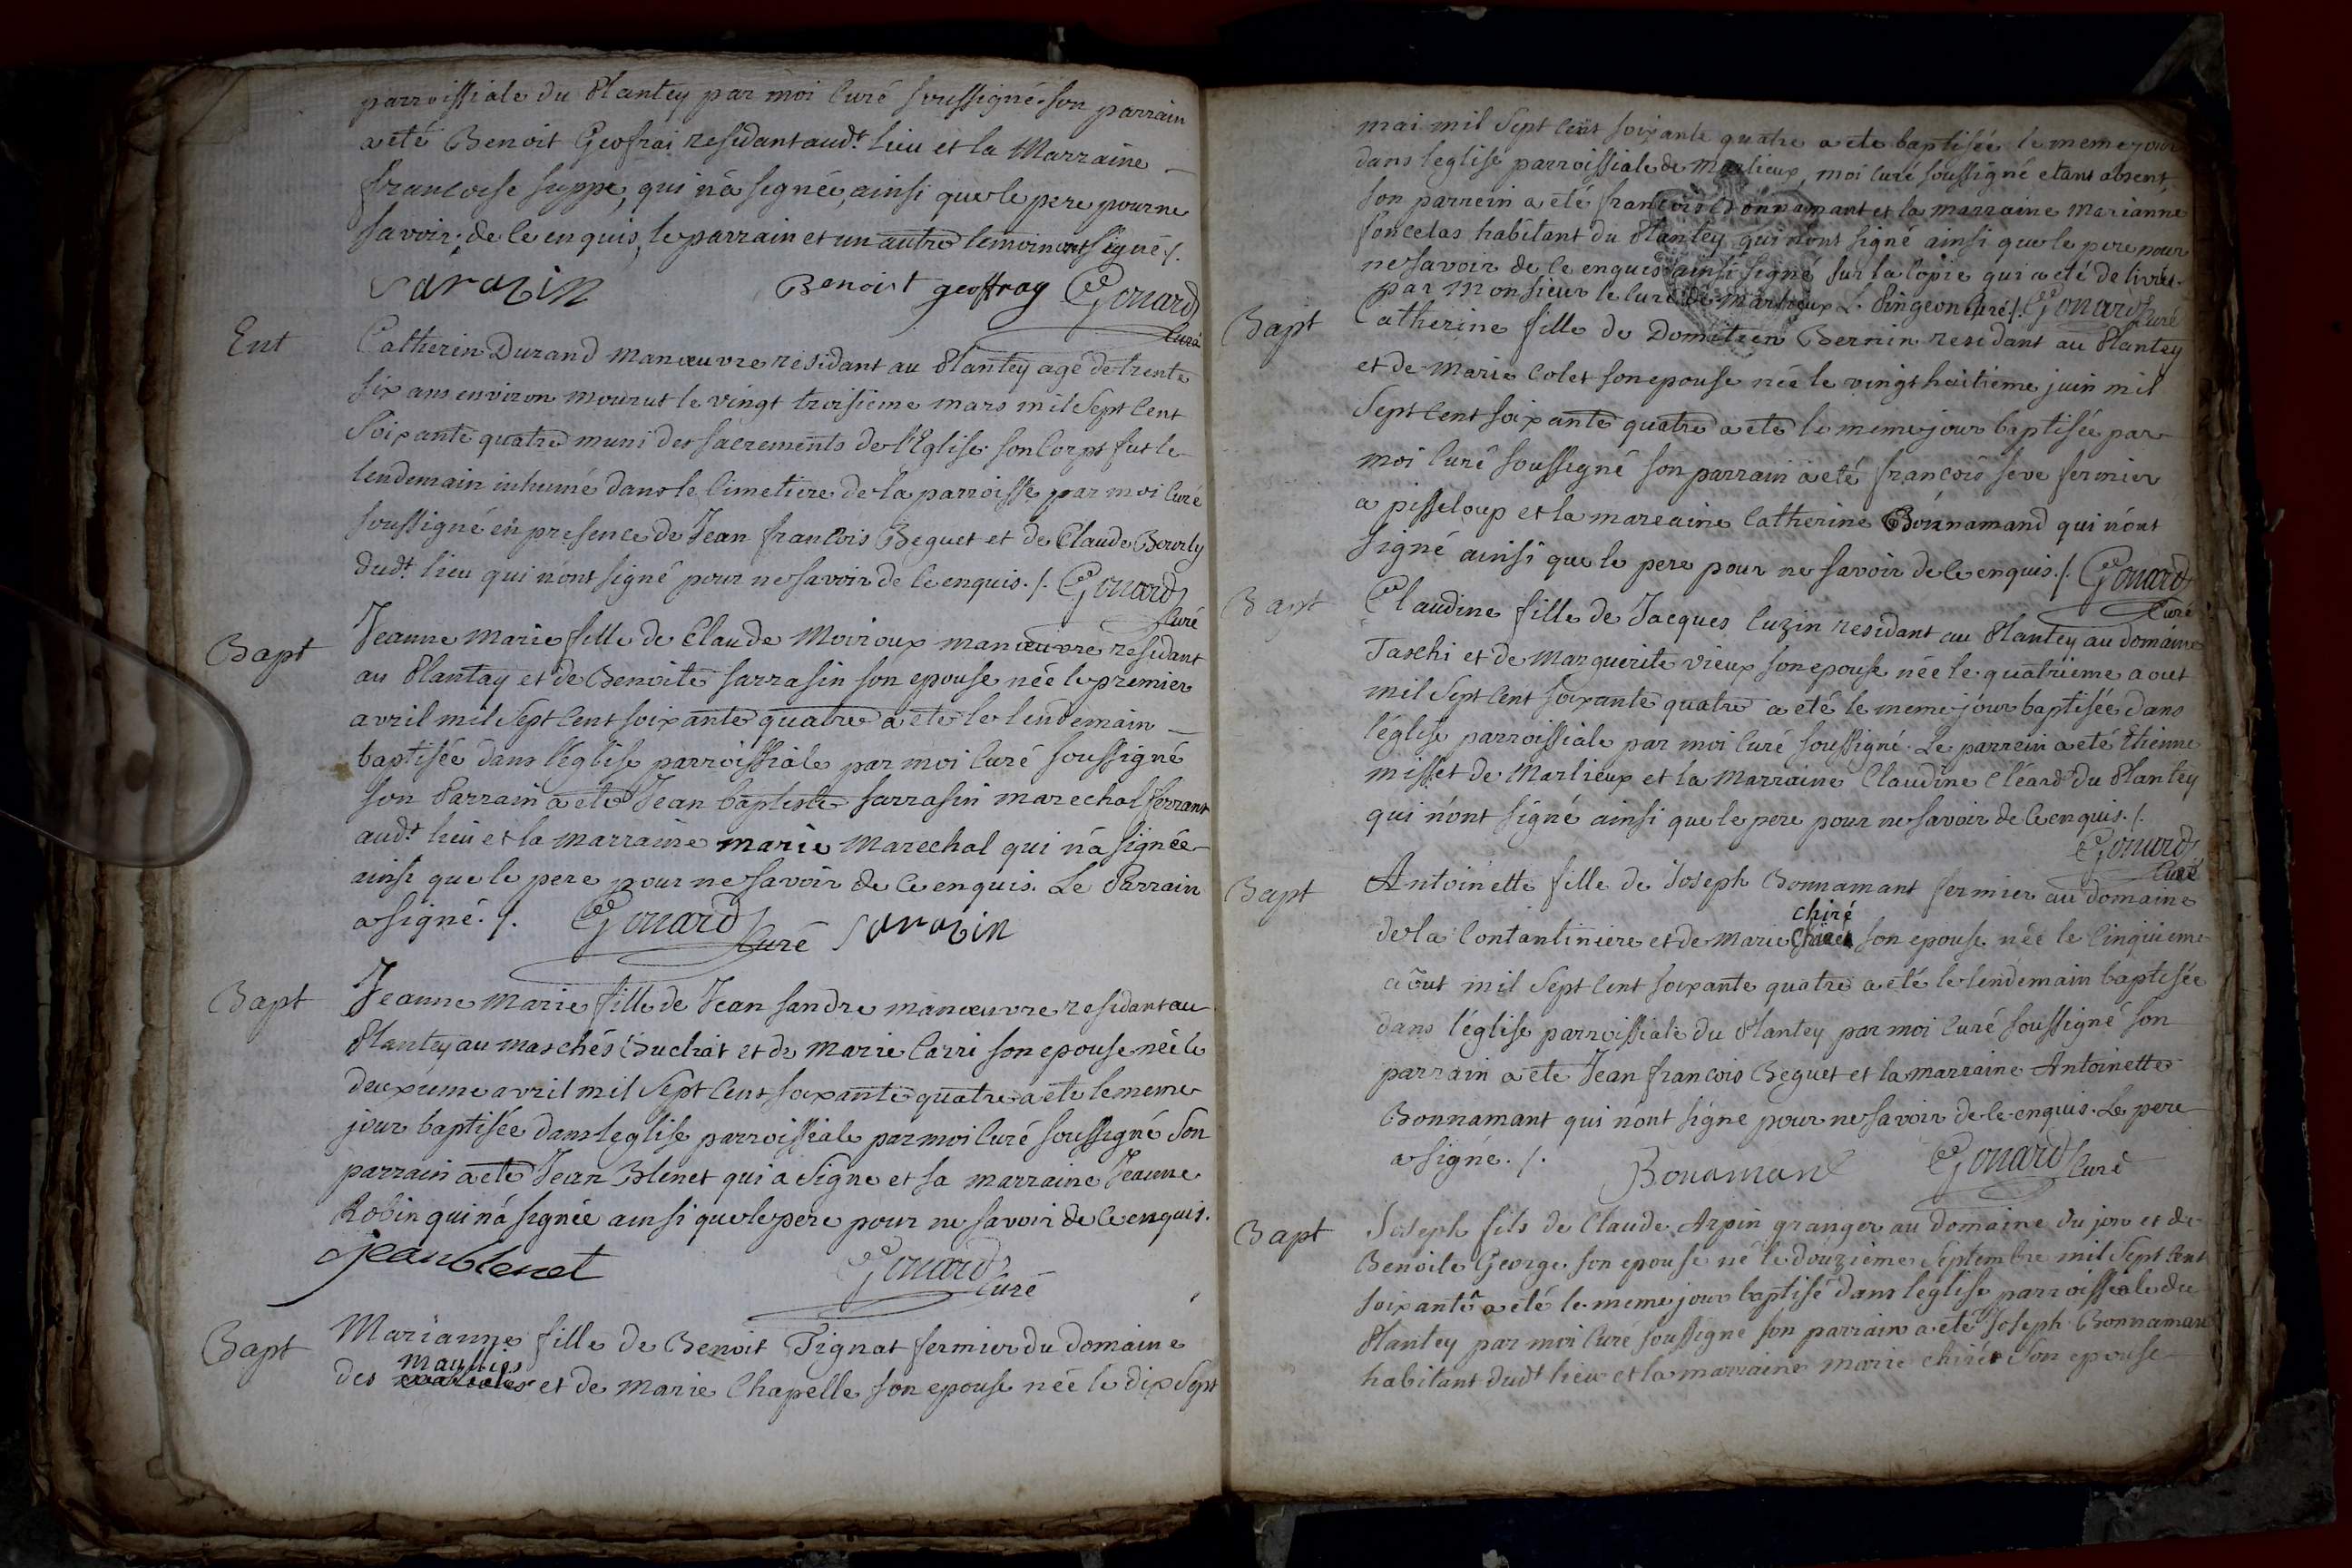 parroissiale du Plantey par moi curé soussigné. son parrain
a eté Benoit Geofrai residant aud.t lieu et la Marraine
francoise suppe, qui n'a signée, ainsi que le pere pour ne
savoir, de ce enquis, le parrain et un autre temoin ont signé ./.
Sarazin Benoist geoffray Gonard
curé
Ent Catherin Durand manœuvre residant au Plantey agé de trente
six ans environ mourut le vingt troisieme mars mil sept cent
soixante quatre muni des sacrements de l'Eglise. son corps fut le
lendemain inhumé dans le cimetiere de la parroisse par moi curé
soussigné en presence de Jean francois Beguet et de Claude Bourly
dud.t lieu qui n'ont signé pour ne savoir de ce enquis. /. Gonard
curé
Bapt Jeanne Marie fille de Claude Moiroux manœuvre residant
au Plantay et de Benoite sarrasin son epouse née le premier
avril mil sept cent soixante quatre a eté le lendemain
baptisée dans l'église parroissiale par moi curé soussigné
son Parrain a eté Jean baptiste sarrasin marechal ferrant
aud.t lieu et la marraine marie Marechal qui n'a signée
ainsi que le pere pour ne savoir de ce enquis. Le Parrain
a signé. /. Gonard curé sarazin
Bapt Jeanne Marie fille de Jean sandre manœuvre residant au
Plantey au maschés Buchat et de Marie Carri son epouse née le
deuxieme avril mil sept cent soixante quatre a eté le meme
jour baptisée dans leglise parroissiale par moi curé soussigné son
parrain a eté Jean Blenet qui a signé et sa marraine Jeanne
Robin qui n'a signée ainsi que le pere pour ne savoir de ce enquis.
jean blenet Gonard
curé
Bapt Marianne fille de Benoit Tignat fermier du domaine
des et de Marie Chapelle son epouse née le dix sept
mai mil sept cent soixante quatre a eté baptisée le meme jour
dans leglise parroissiale de Marlieux, moi curé soussigné etant absent,
son parrein a eté francois Bonnamant et la marraine Marianne
foncelas habitant du Plantey qui n'ont signé ainsi que le pere pour
ne savoir de ce enquis ainsi signé sur la copie qui a eté delivrée
par Monsieur le curé de Marlieux L. Pingeon curé /. Gonard curé
Bapt Catherine fille de Domitien Bernin residant au Plantey
et de Marie Colet son epouse née le vingt huitieme juin mil
sept cent soixante quatre a eté le meme jour baptisée par
moi curé soussigné son parrain a eté francois seve fermier
a pisseloup et la marraine Catherine Bonnamand qui n'ont
signé ainsi que le pere pour ne savoir de ce enquis. /. Gonard
curé
Bapt Claudine fille de Jacques Cuzin residant au Plantey au domaine
Taschi et de Marguerite vieux son epouse née le quatrieme aout
mil sept cent soixante quatre a eté le meme jour baptisée dans
l'église parroissiale par moi curé soussigné. Le parrein a eté Etienne
misset de Marlieux et la Marraine Claudine Cléard du Plantey
qui n'ont signé ainsi que le pere pour ne savoir de ce enquis. /.
Gonard
curé
Bapt Antoinette fille de Joseph Bonnamant fermier au domaine
chiré
de la Contantiniere et de Marie son epouse née le cinquieme
aout mil sept cent soixante quatre a eté le lendemain baptisée
dans l'église parroissiale du Plantey par moi curé soussigné son
parrain a eté Jean francois Beguet et la marraine Antoinette
Bonnamant qui n'ont signé pour ne savoir de ce enquis. Le pere
a signé. /. Bonamant Gonard curé
Bapt Joseph fils de Claude Arpin granger au domaine du jon et de
Benoite George son epouse né le douzieme septembre mil sept cent
soixante a eté le meme jour baptisé dans leglise parroissiale du
Plantey par moi curé soussigné son parrain a eté Joseph Bonnamant
habitant dudt lieu et la marraine marie chiré son epouse